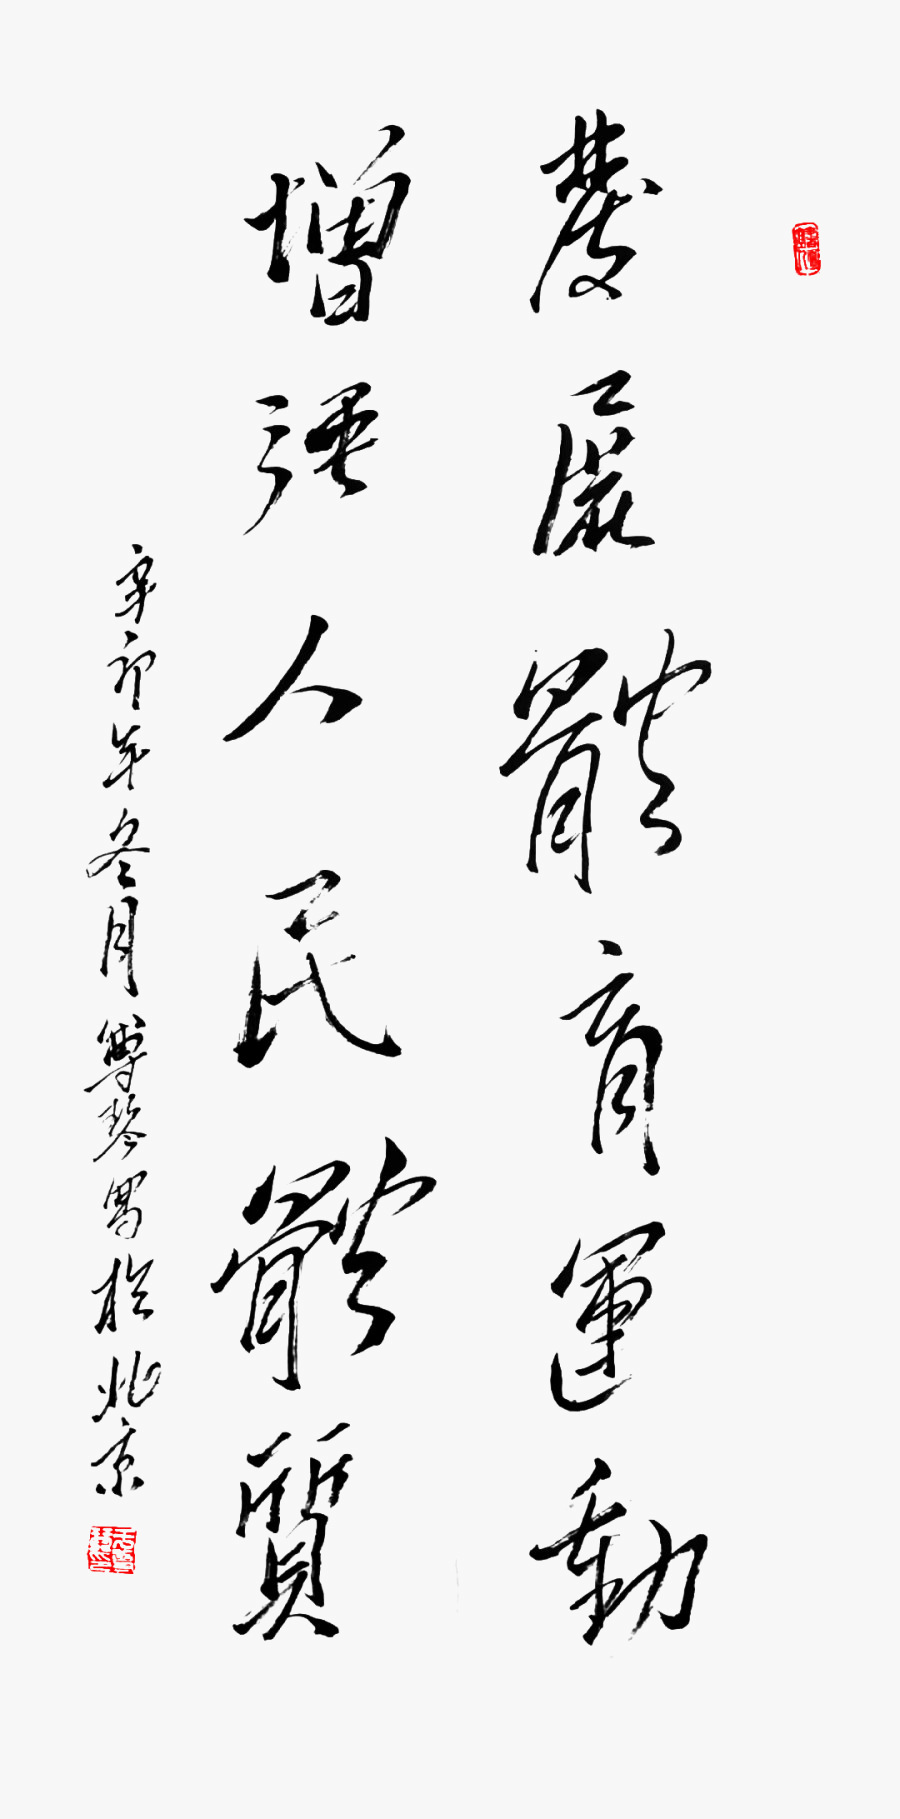 發展體育運動
增強人民體質
辛卯年冬月尊琴寫於北京